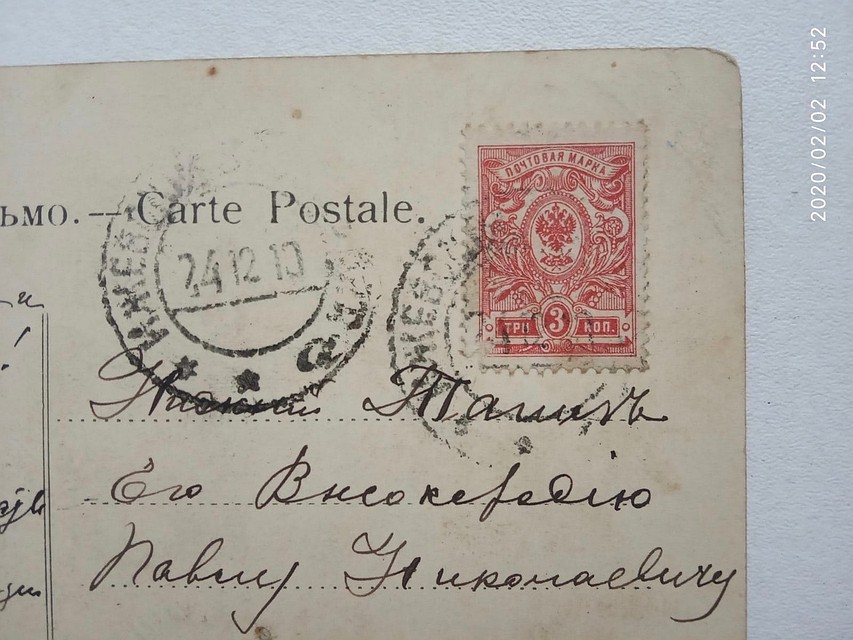 2020/02/02 12:52
ьмо. — Carte Postale.
ПОЧТОВАЯ МАРКА
24 12 10
ТРИ 3 КОП.
Нижний Тагилъ
Его Высокородію
Павлу Николаевичу